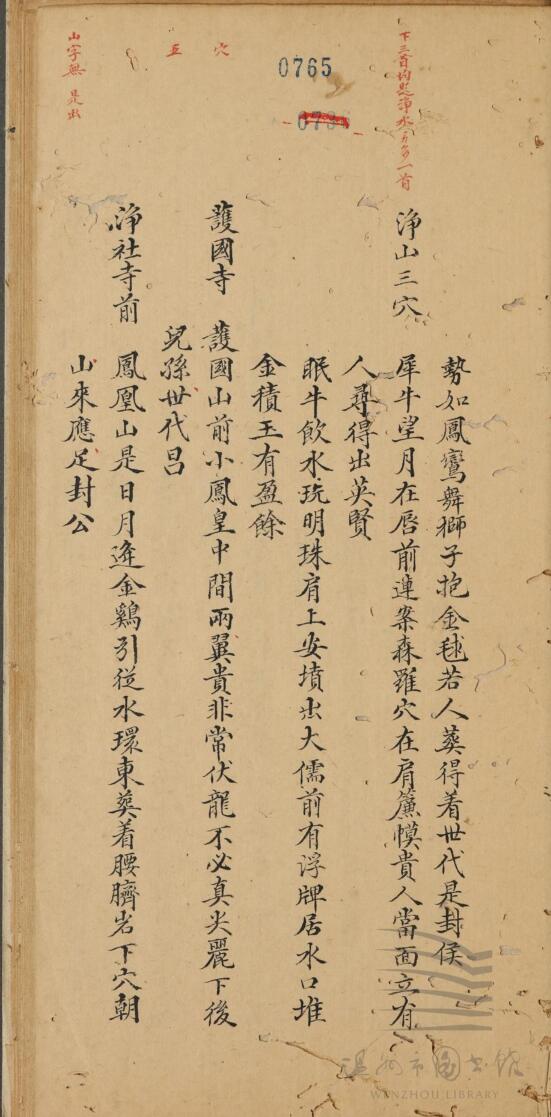 下三首均是淨水
淨山三穴
勢如鳳鸞舞獅子抱金毬若人葬得着世代是封侯
犀牛望月在唇前連案森羅穴在肩簾幙貴人當面立有
人尋得出英賢
眠牛飲水玩明珠肩上安墳出大儒前有浮牌居水口堆
金積玉有盈餘
護國寺
護國山前小鳳皇中間兩翼貴非常伏龍不必真尖麗下後
兒孫世代昌
淨社寺前
鳳凰山是日月逢金鷄引從水環東葬着腰臍岩下穴朝
山來應足封公
0765
穴
五
山字無 是出
溫州市圖書館
WENZHOU LIBRARY